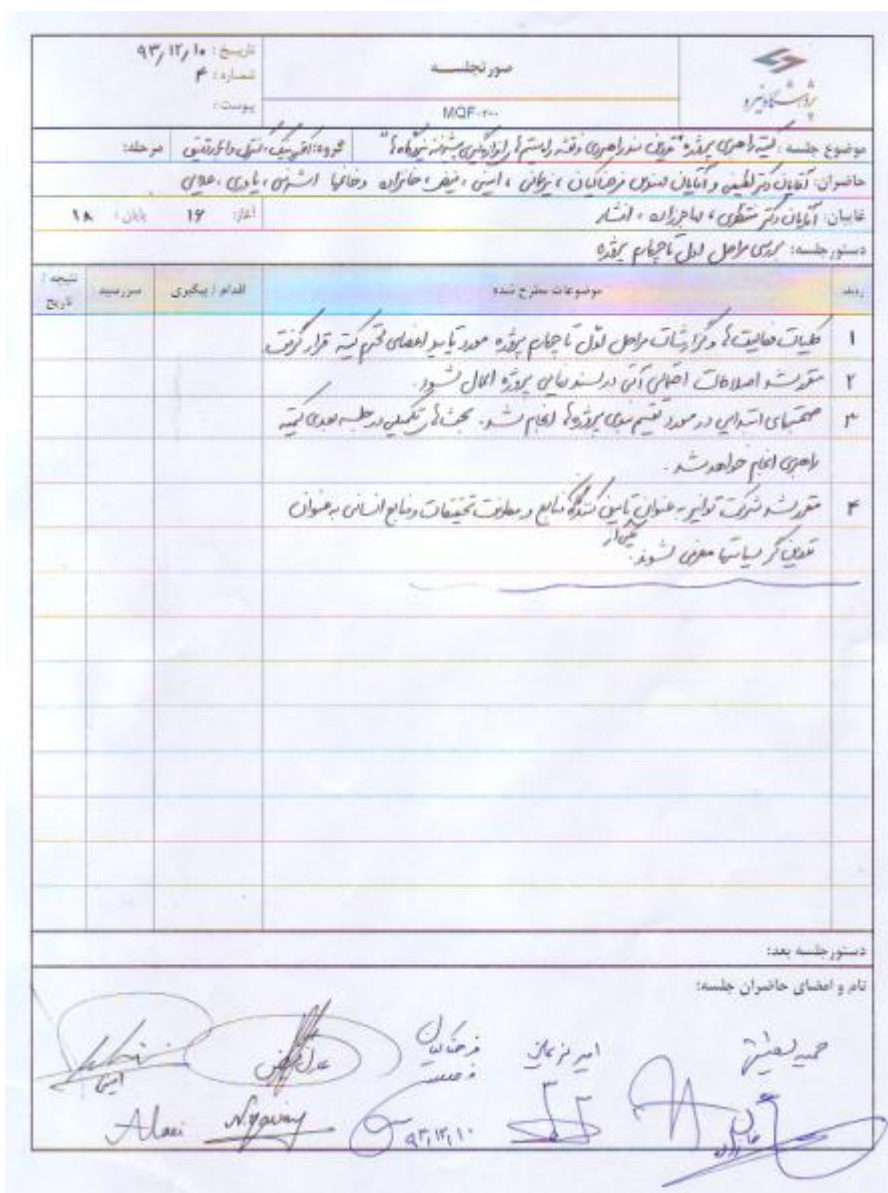 تاریخ: ۹۳/۱۲/۱۰
شماره: ۴
پیوست:
صورتجلسه
MQF-۲۰۰
پژوهشگاه نیرو
موضوع جلسه: کمیته راهبری پروژه "تدوین سند راهبردی و نقشه راه سیستم‌های ابزار دقیق پیشرفته نیروگاه‌ها" گروه: الکترونیک، کنترل و ابزار دقیق مرحله:
حاضران: آقایان دکتر لطیفی و آقایان مهندس فرهنگیان، نریمانی، امینی، فیض، خانزاده و خانمها یاوری، علایی
غایبان: آقایان دکتر منتظری، افشار آغاز: ۱۶ پایان: ۱۸
دستور جلسه: بررسی مراحل اول تا چهارم پروژه
ردیف موضوعات مطرح شده اقدام / پیگیری سررسید نتیجه / تاریخ
۱ کلیات فعالیت‌ها و گزارشات مراحل اول تا چهارم پروژه مورد تایید اعضای محترم کمیته قرار گرفت
۲ مقرر شد اصلاحات احتمالی آتی در سند نهایی پروژه اعمال شود.
۳ صحبتهای ابتدایی در مورد تقسیم بندی پروژه‌ها انجام شد. بحث‌های تکمیلی در جلسه بعدی کمیته
راهبری انجام خواهد شد.
۴ مقرر شد شرکت توانیر به عنوان تامین کننده منابع و معاونت تحقیقات و منابع انسانی به عنوان
تدوین گر سیاستها معرفی شوند.
دستور جلسه بعد:
نام و امضای حاضران جلسه:
فرهنگیان
امینی
Alaei
۹۳,۱۲,۱۰
خانزاده